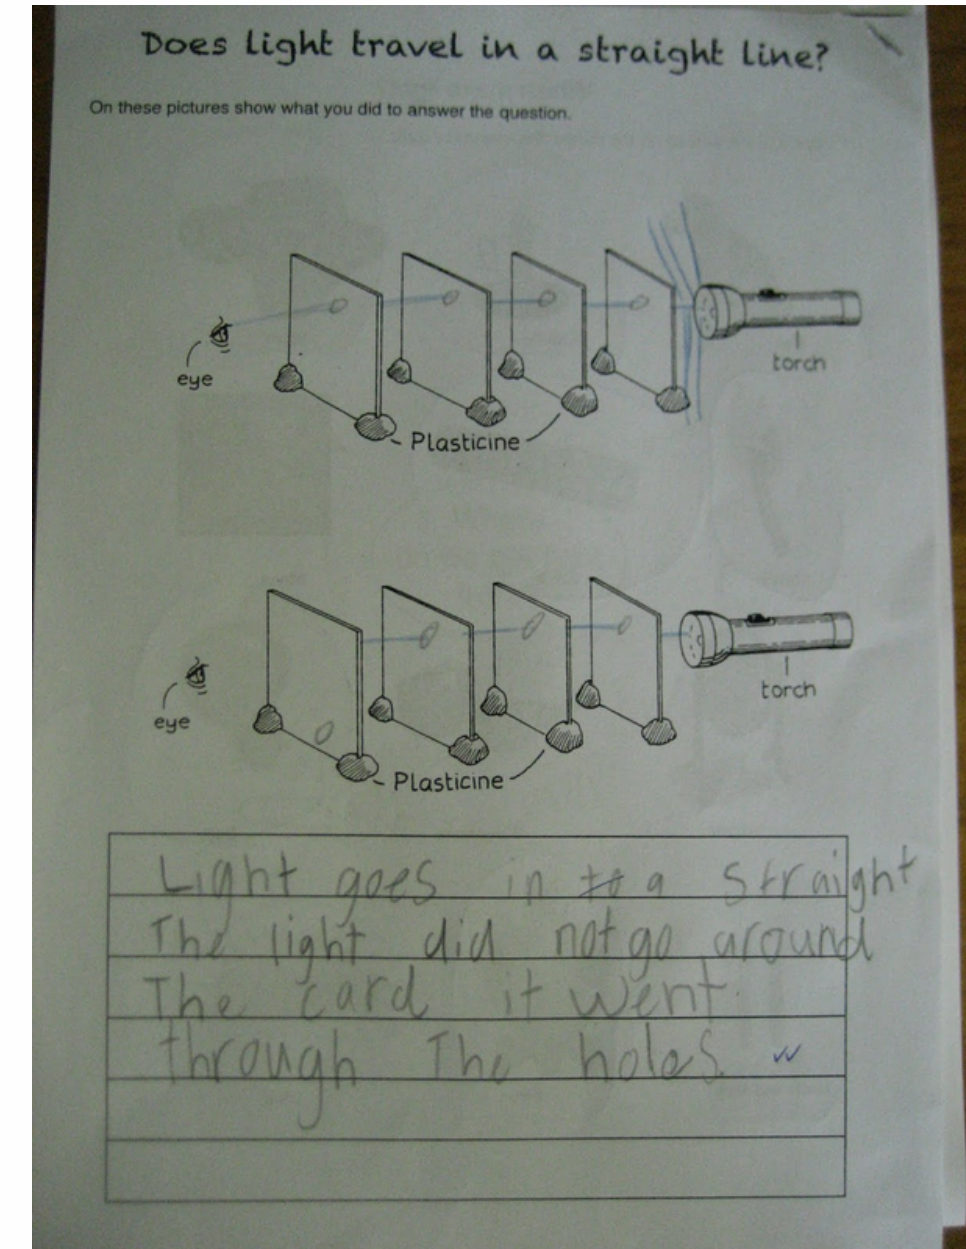 Does Light travel in a straight line?
On these pictures show what you did to answer the question.
eye
torch
Plasticine
eye
torch
Plasticine
Light goes in to a straight
The light did not go around
The card it went
through The holes.